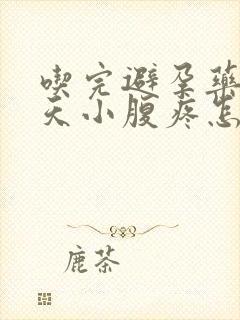 喫完避孕藥
天小腹疼怎
鹿茶